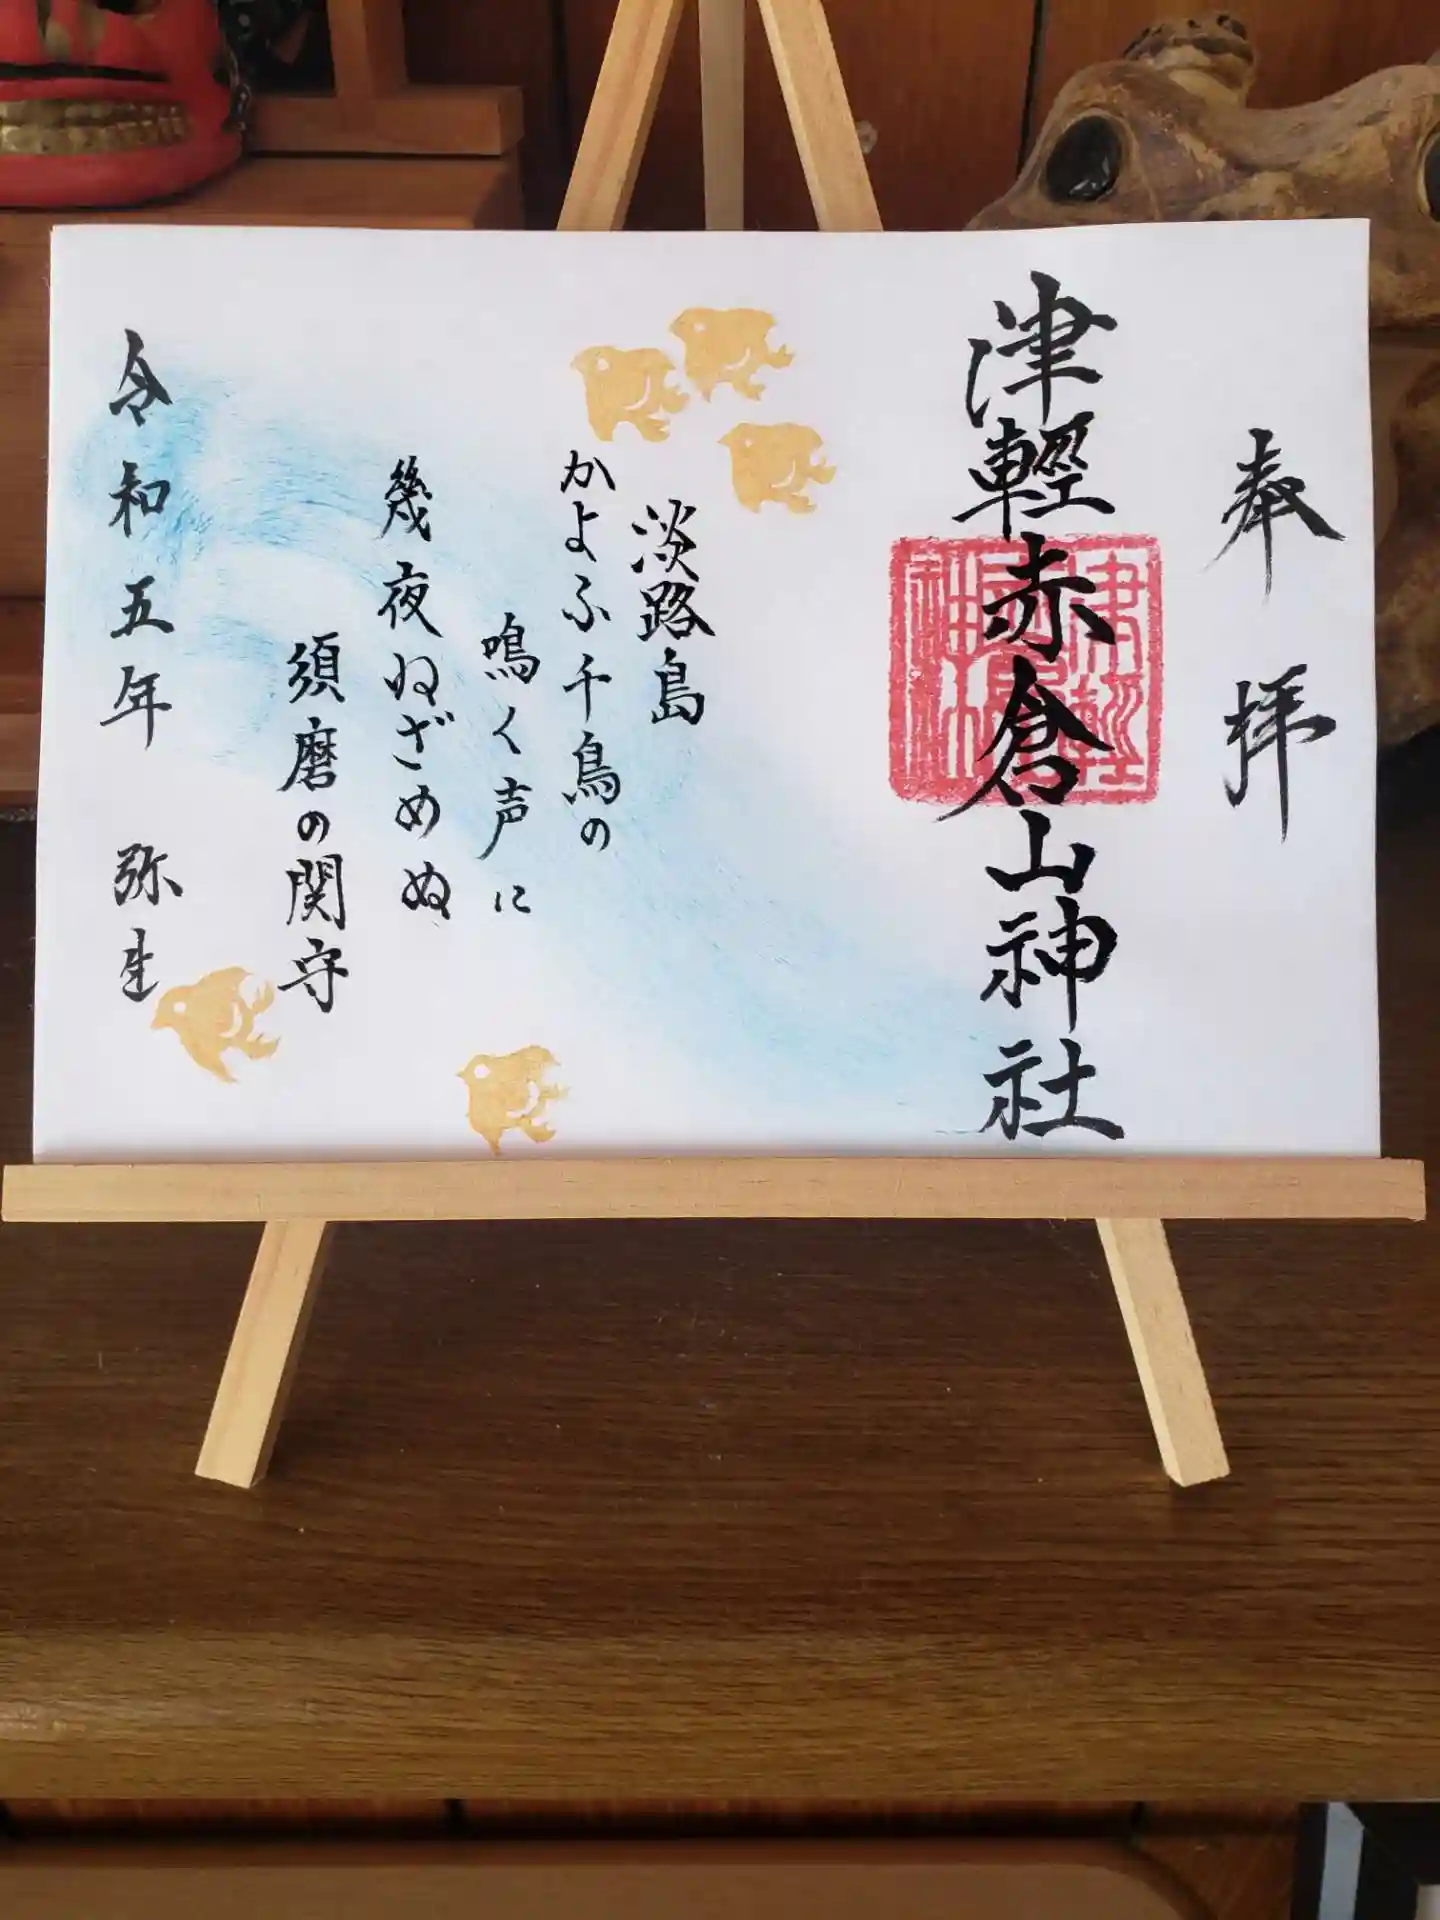 奉拝
津輕赤倉山神社
淡路島
かよふ千鳥の
鳴く声に
幾夜ねざめぬ
須磨の関守
令和五年 弥生